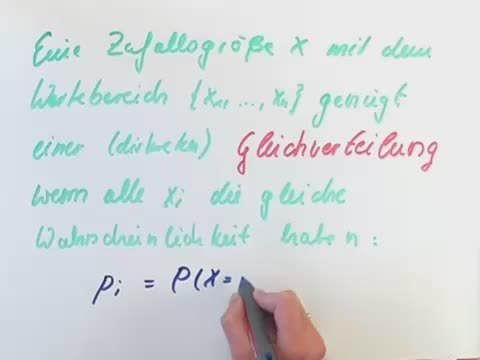 Eine Zufallsgröße X mit dem
Wertebereich {x₁, ..., xₙ} genügt
einer (diskreten) Gleichverteilung
wenn alle xᵢ die gleiche
Wahrscheinlichkeit haben:
pᵢ = P(X=